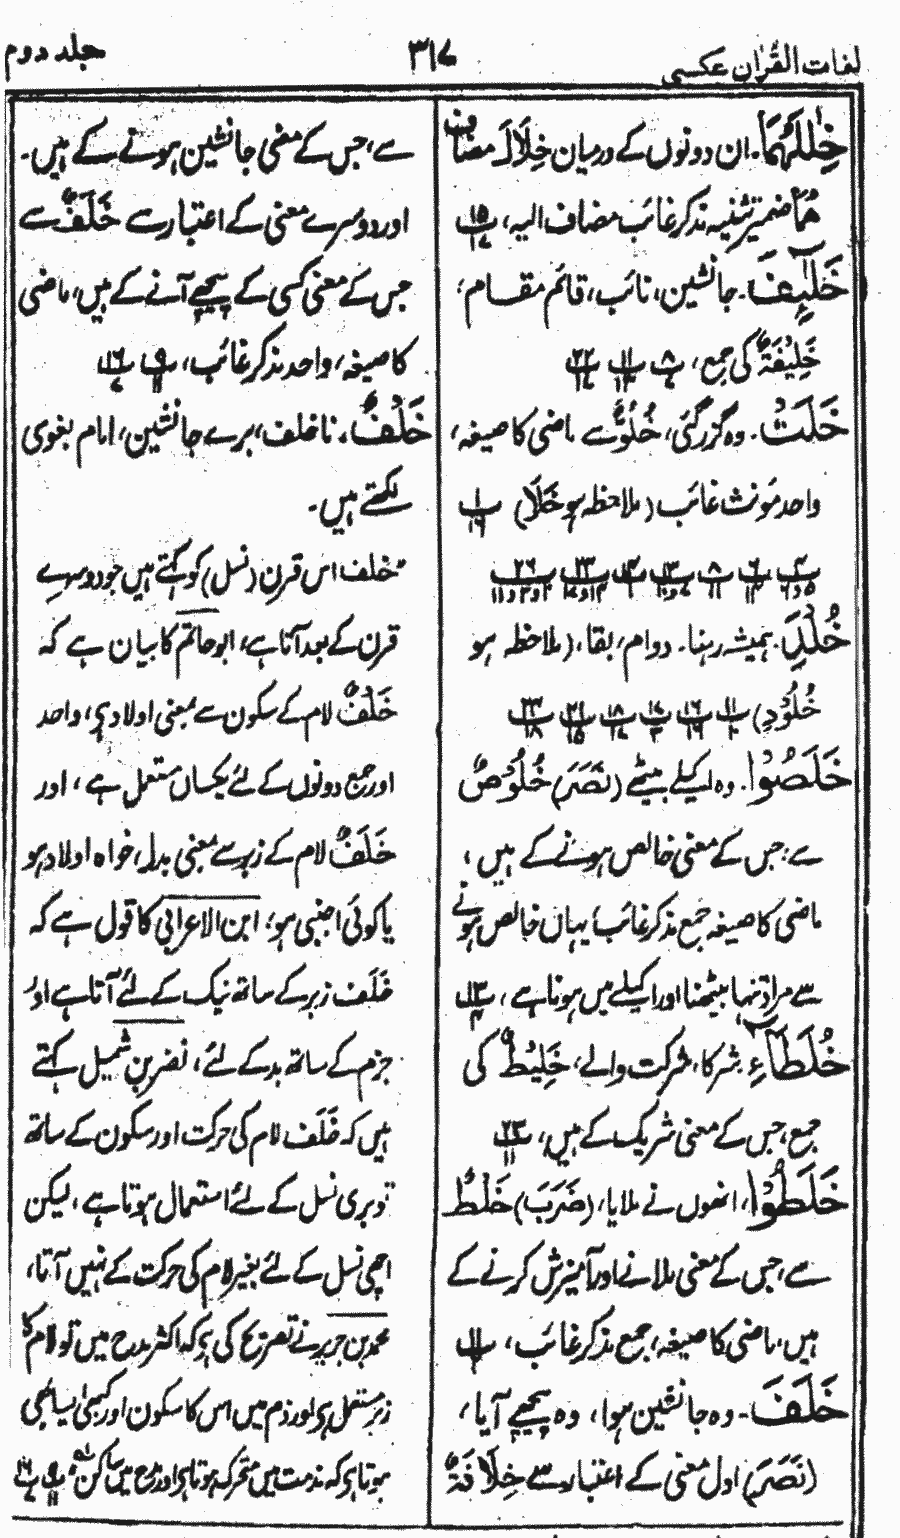 لغات القرآن عکسی
۳۱۷
جلد دوم
خِلٰلَهُمَا۔ ان دونوں کے درمیان خِلَالَ مضاف
هُمَا ضمیر تثنیہ مذکر غائب مضاف الیہ، پ ۱۵ ۱۷
خَلٰٓئِفَ۔ جانشین، نائب، قائم مقام،
خَلِیْفَةٌ کی جمع، پ ۸ ۷ پ ۱۱ ۱۳ پ ۲۲ ۱۷
خَلَتْ۔ وہ گزر گئی، خُلُوٌّ سے ماضی کا صیغہ،
واحد مؤنث غائب (ملاحظہ ہو خَلَا) پ ۱ ۱۶
پ ۴ پ ۶ پ ۸ پ ۱۳ پ ۲۳ پ ۲۶
خُلْدِ۔ ہمیشہ رہنا۔ دوام، بقا، (ملاحظہ ہو
خُلُوْدِ) پ ۱۱ پ ۱۶ پ ۱۷ پ ۱۸ پ ۲۱ پ ۲۳
خَلَصُوْا۔ وہ اکیلے بیٹھے (نَصَرَ) خُلُوْصٌ
سے، جس کے معنی خالص ہونے کے ہیں،
ماضی کا صیغہ جمع مذکر غائب، یہاں خالص ہونے
سے مراد تنہا بیٹھنا اور اکیلے میں ہونا ہے، پ ۱۳ ۴
خُلَطَآءِ شرکا، شرکت والے، خَلِیْطٌ کی
جمع، جس کے معنی شریک کے ہیں، پ ۲۳ ۱۱
خَلَطُوْا، انھوں نے ملایا، (ضَرَبَ) خَلْطٌ
سے، جس کے معنی ملانے اور آمیزش کرنے کے
ہیں، ماضی کا صیغہ، جمع مذکر غائب، پ ۱۱
خَلَفَ۔ وہ جانشین ہوا، وہ پیچھے آیا،
(نَصَرَ) اول معنی کے اعتبار سے خِلَافَةٌ
سے، جس کے معنی جانشین ہونے کے ہیں۔
اور دوسرے معنی کے اعتبار سے خَلْفٌ سے
جس کے معنی کسی کے پیچھے آنے کے ہیں، ماضی
کا صیغہ، واحد مذکر غائب، پ ۹ ۱۱ پ ۱۶ ۷
خَلْفٌ۔ ناخلف، برے جانشین، امام بغوی
لکھتے ہیں۔
"خلف اس قرن (نسل) کو کہتے ہیں جو دوسرے
قرن کے بعد آتا ہے، ابو حاتم کا بیان ہے کہ
خَلْفٌ لام کے سکون سے بمعنی اولاد ہے، واحد
اور جمع دونوں کے لئے یکساں مستعمل ہے، اور
خَلَفٌ لام کے زبر سے بمعنی بدل، خواہ اولاد ہو
یا کوئی اجنبی ہو، ابن الاعرابی کا قول ہے کہ
خَلَف زبر کے ساتھ نیک کے لئے آتا ہے اور
جزم کے ساتھ بد کے لئے، نضر بن شمیل کہتے
ہیں کہ خَلَف لام کی حرکت اور سکون کے ساتھ
تو بری نسل کے لئے استعمال ہوتا ہے، لیکن
اچھی نسل کے لئے بغیر لام کی حرکت کے نہیں آتا،
محمد بن جریر نے تصریح کی ہے کہ اکثر مدح میں تو لام کا
زبر مستعمل ہے اور ذم میں اس کا سکون اور کبھی ایسا بھی
ہوتا ہے کہ مذمت میں متحرک ہوتا ہے اور مدح میں ساکن" پ ۹ ۱۱ پ ۱۶ ۷